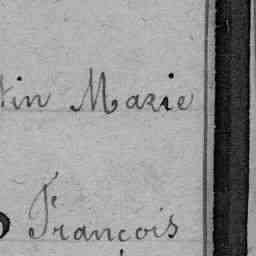 tin Marie
François